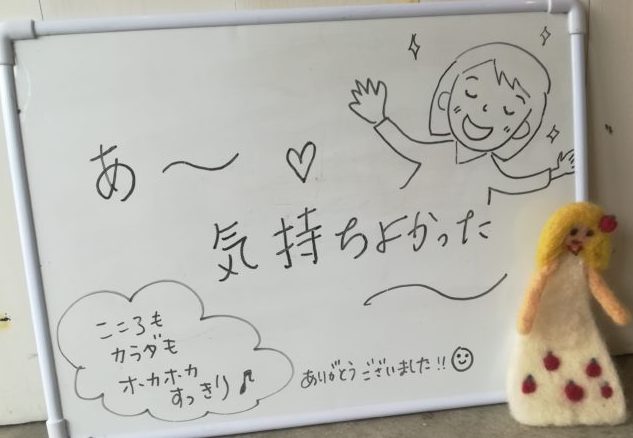 あ〜♡
気持ちよかった〜
こころも
カラダも
ホカホカ
すっきり♪
ありがとうございました!!☺